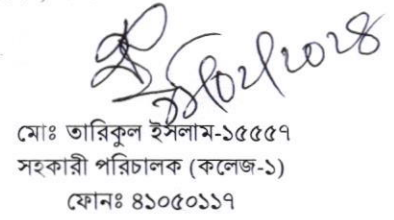 মোঃ তারিকুল ইসলাম-১৫৫৫৭
সহকারী পরিচালক (কলেজ-১)
ফোনঃ ৪১০৫০১১৭